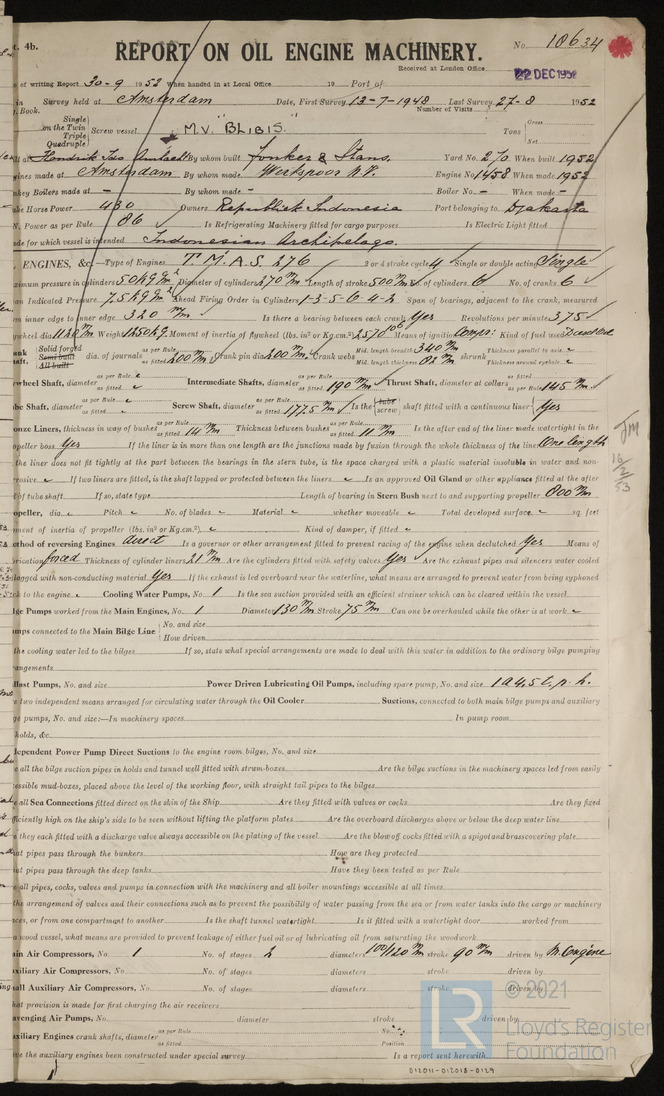 t. 4b.
REPORT ON OIL ENGINE MACHINERY.
No. 18634
Received at London Office
22 DEC 1952
of writing Report 30-9 1952 When handed in at Local Office 19 Port of
in Survey held at Amsterdam Date, First Survey 13-7-1948 Last Survey 27-8 1952
Book. Number of Visits
Single
on the Twin Screw vessel M.V. "BLIBIS" Tons Gross
Triple
Quadruple Net
at Hendrik Ido Ambacht By whom built Jonker & Stans. Yard No. 270 When built 1952
ines made at Amsterdam By whom made Werkspoor N.V. Engine No 1458 When made 1952
nkey Boilers made at - By whom made - Boiler No. - When made -
ke Horse Power 430 Owners Republiek Indonesia Port belonging to Djakarta
Power as per Rule 86 Is Refrigerating Machinery fitted for cargo purposes Is Electric Light fitted
de for which vessel is intended Indonesian Archipelago.
ENGINES, &c.—Type of Engines T.M.A.S. 276 2 or 4 stroke cycle 4 Single or double acting Single
imum pressure in cylinders 50 kg/cm² Diameter of cylinders 270 m/m Length of stroke 500 m/m No. of cylinders 6 No. of cranks 6
an Indicated Pressure 7.5 kg/cm² Ahead Firing Order in Cylinders 1-3-5-6-4-2 Span of bearings, adjacent to the crank, measured
m inner edge to inner edge 320 m/m Is there a bearing between each crank Yes Revolutions per minute 375
ywheel dia 1120 m/m Weight 1250 kg. Moment of inertia of flywheel (lbs. in² or Kg.cm²) Means of ignition Compr: Kind of fuel used Diesel oil
Solid forged
Semi built dia. of journals as per Rule as fitted 200 m/m Crank pin dia 200 m/m Crank webs Mid. length breadth 340 m/m Mid. length thickness shrunk Thickness parallel to axis Thickness around eyehole
All built
wheel Shaft, diameter as per Rule as fitted Intermediate Shafts, diameter as per Rule as fitted 190 m/m Thrust Shaft, diameter at collars as fitted as per Rule 145 m/m
be Shaft, diameter as per Rule as fitted Screw Shaft, diameter as per Rule as fitted 177.5 m/m Is the tube screw shaft fitted with a continuous liner Yes
onze Liners, thickness in way of bushes as per Rule as fitted 14 m/m Thickness between bushes as per Rule as fitted 11 m/m Is the after end of the liner made watertight in the
opeller boss Yes If the liner is in more than one length are the junctions made by fusion through the whole thickness of the liner One length
the liner does not fit tightly at the part between the bearings in the stern tube, is the space charged with a plastic material insoluble in water and non-
rrosive If two liners are fitted, is the shaft lapped or protected between the liners Is an approved Oil Gland or other appliance fitted at the after
of tube shaft If so, state type Length of bearing in Stern Bush next to and supporting propeller 800 m/m
opeller, dia. Pitch No. of blades Material whether moveable Total developed surface sq. feet
ment of inertia of propeller (lbs. in² or Kg.cm²) Kind of damper, if fitted
ethod of reversing Engines direct Is a governor or other arrangement fitted to prevent racing of the engine when declutched Yes Means of
rication forced Thickness of cylinder liners 21 m/m Are the cylinders fitted with safety valves Yes Are the exhaust pipes and silencers water cooled
lagged with non-conducting material Yes If the exhaust is led overboard near the waterline, what means are arranged to prevent water from being syphoned
ck to the engine Cooling Water Pumps, No. 1 Is the sea suction provided with an efficient strainer which can be cleared within the vessel
lge Pumps worked from the Main Engines, No. 1 Diameter 130 m/m Stroke 75 m/m Can one be overhauled while the other is at work
umps connected to the Main Bilge Line No. and size
How driven
the cooling water led to the bilges If so, state what special arrangements are made to deal with this water in addition to the ordinary bilge pumping
rangements
llast Pumps, No. and size Power Driven Lubricating Oil Pumps, including spare pump, No. and size
e two independent means arranged for circulating water through the Oil Cooler Suctions, connected to both main bilge pumps and auxiliary
ge pumps, No. and size:—In machinery spaces In pump room
holds, &c.
dependent Power Pump Direct Suctions to the engine room bilges, No. and size
e all the bilge suction pipes in holds and tunnel well fitted with strum-boxes Are the bilge suctions in the machinery spaces led from easily
essible mud-boxes, placed above the level of the working floor, with straight tail pipes to the bilges
e all Sea Connections fitted direct on the skin of the Ship Are they fitted with valves or cocks Are they fixed
fficiently high on the ship's side to be seen without lifting the platform plates Are the overboard discharges above or below the deep water line
e they each fitted with a discharge valve always accessible on the plating of the vessel Are the blow off cocks fitted with a spigot and brass covering plate
at pipes pass through the bunkers How are they protected
at pipes pass through the deep tanks Have they been tested as per Rule
e all pipes, cocks, valves and pumps in connection with the machinery and all boiler mountings accessible at all times
the arrangement of valves and their connections such as to prevent the possibility of water passing from the sea or from water tanks into the cargo or machinery
ces, or from one compartment to another Is the shaft tunnel watertight Is it fitted with a watertight door worked from
a wood vessel, what means are provided to prevent leakage of either fuel oil or of lubricating oil from saturating the woodwork
ain Air Compressors, No. 1 No. of stages 2 diameters 100/120 m/m stroke 90 m/m driven by M. Engine
uxiliary Air Compressors, No. No. of stages diameters stroke driven by
all Auxiliary Air Compressors, No. No. of stages diameters stroke driven by
at provision is made for first charging the air receivers
avenging Air Pumps, No. diameter stroke driven by
uxiliary Engines crank shafts, diameter as per Rule as fitted No. Position
ve the auxiliary engines been constructed under special survey Is a report sent herewith
16
2
53
LR
© 2021
Lloyd's Register
Foundation
012011-012018-0129